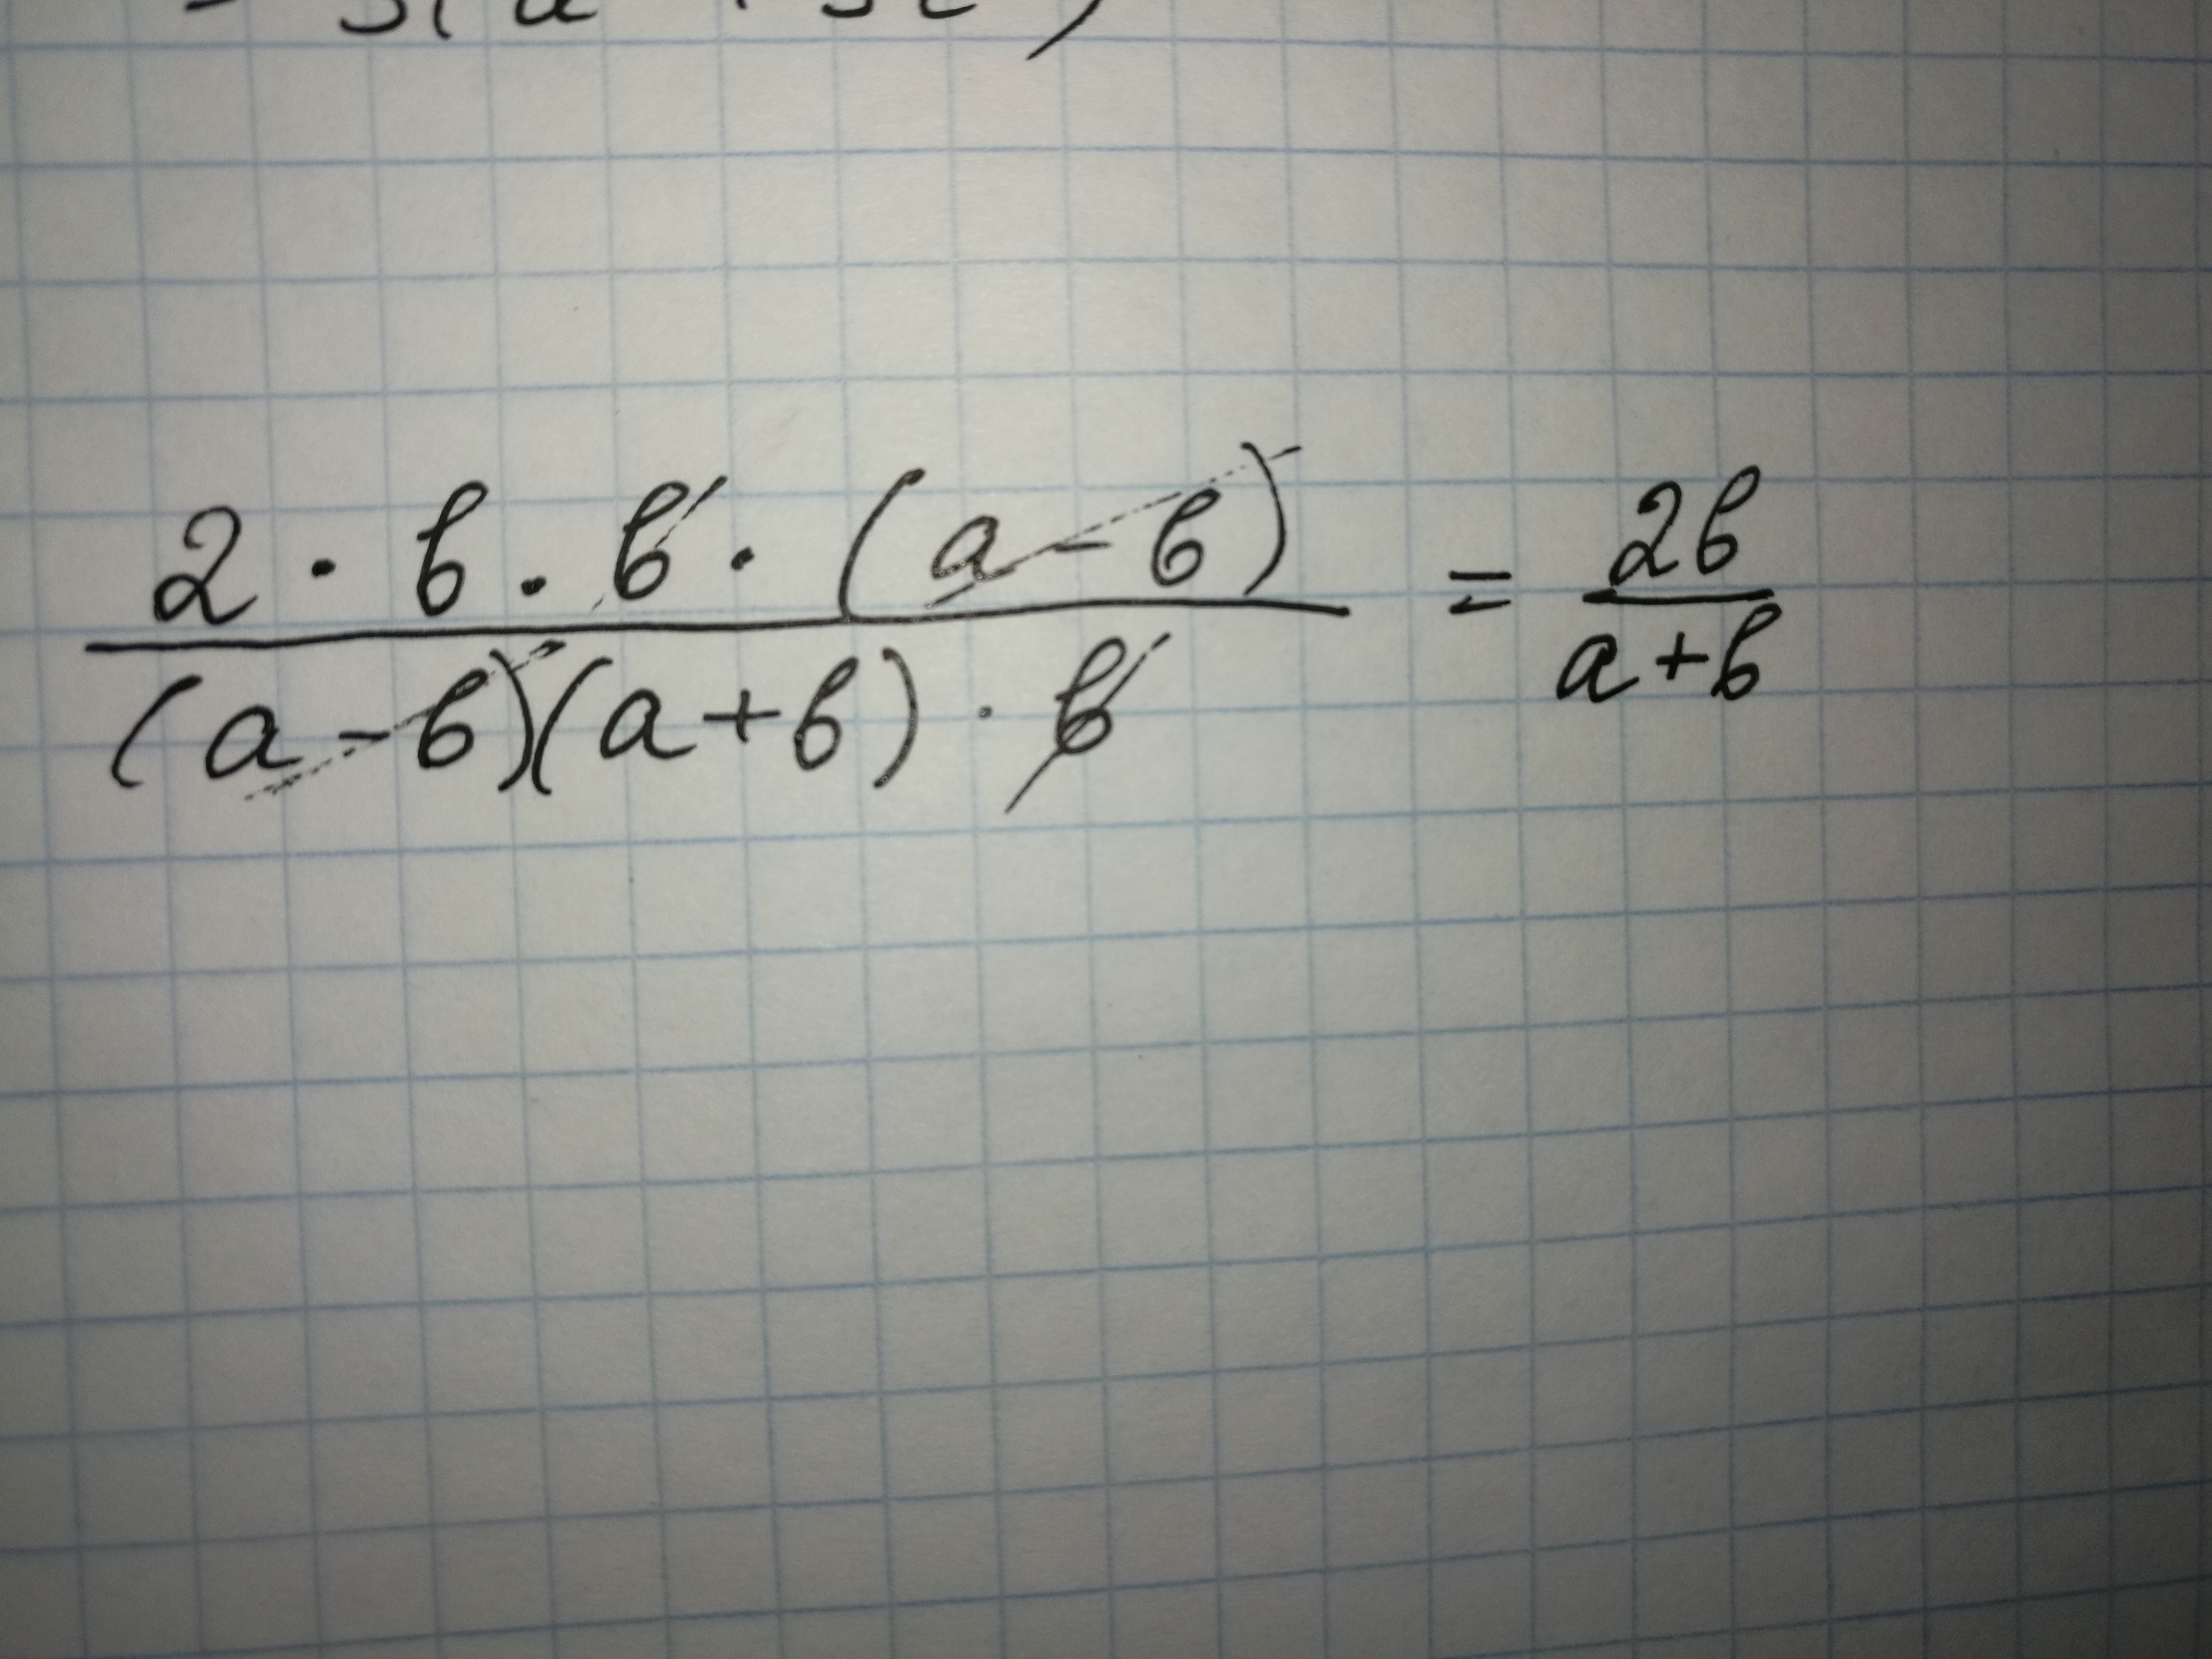 2 · b · b · (a - b) / (a - b)(a + b) · b = 2b / a + b